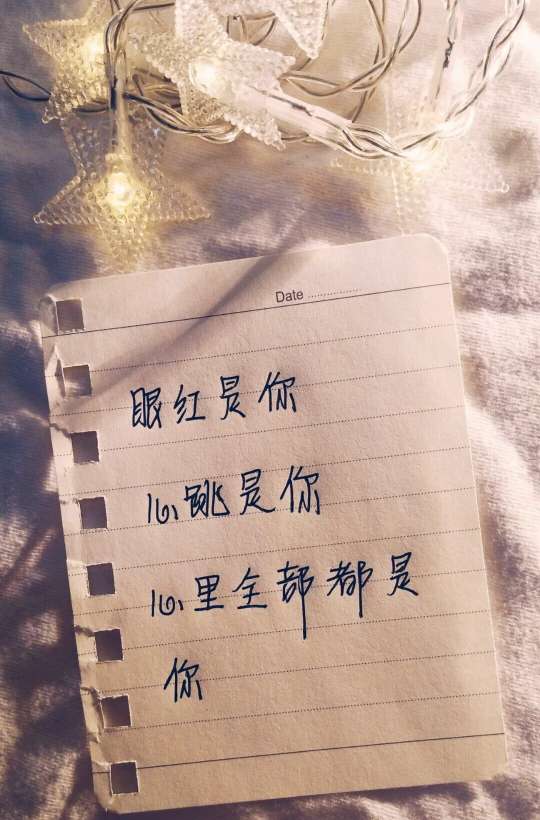 Date
眼红是你
心跳是你
心里全部都是
你